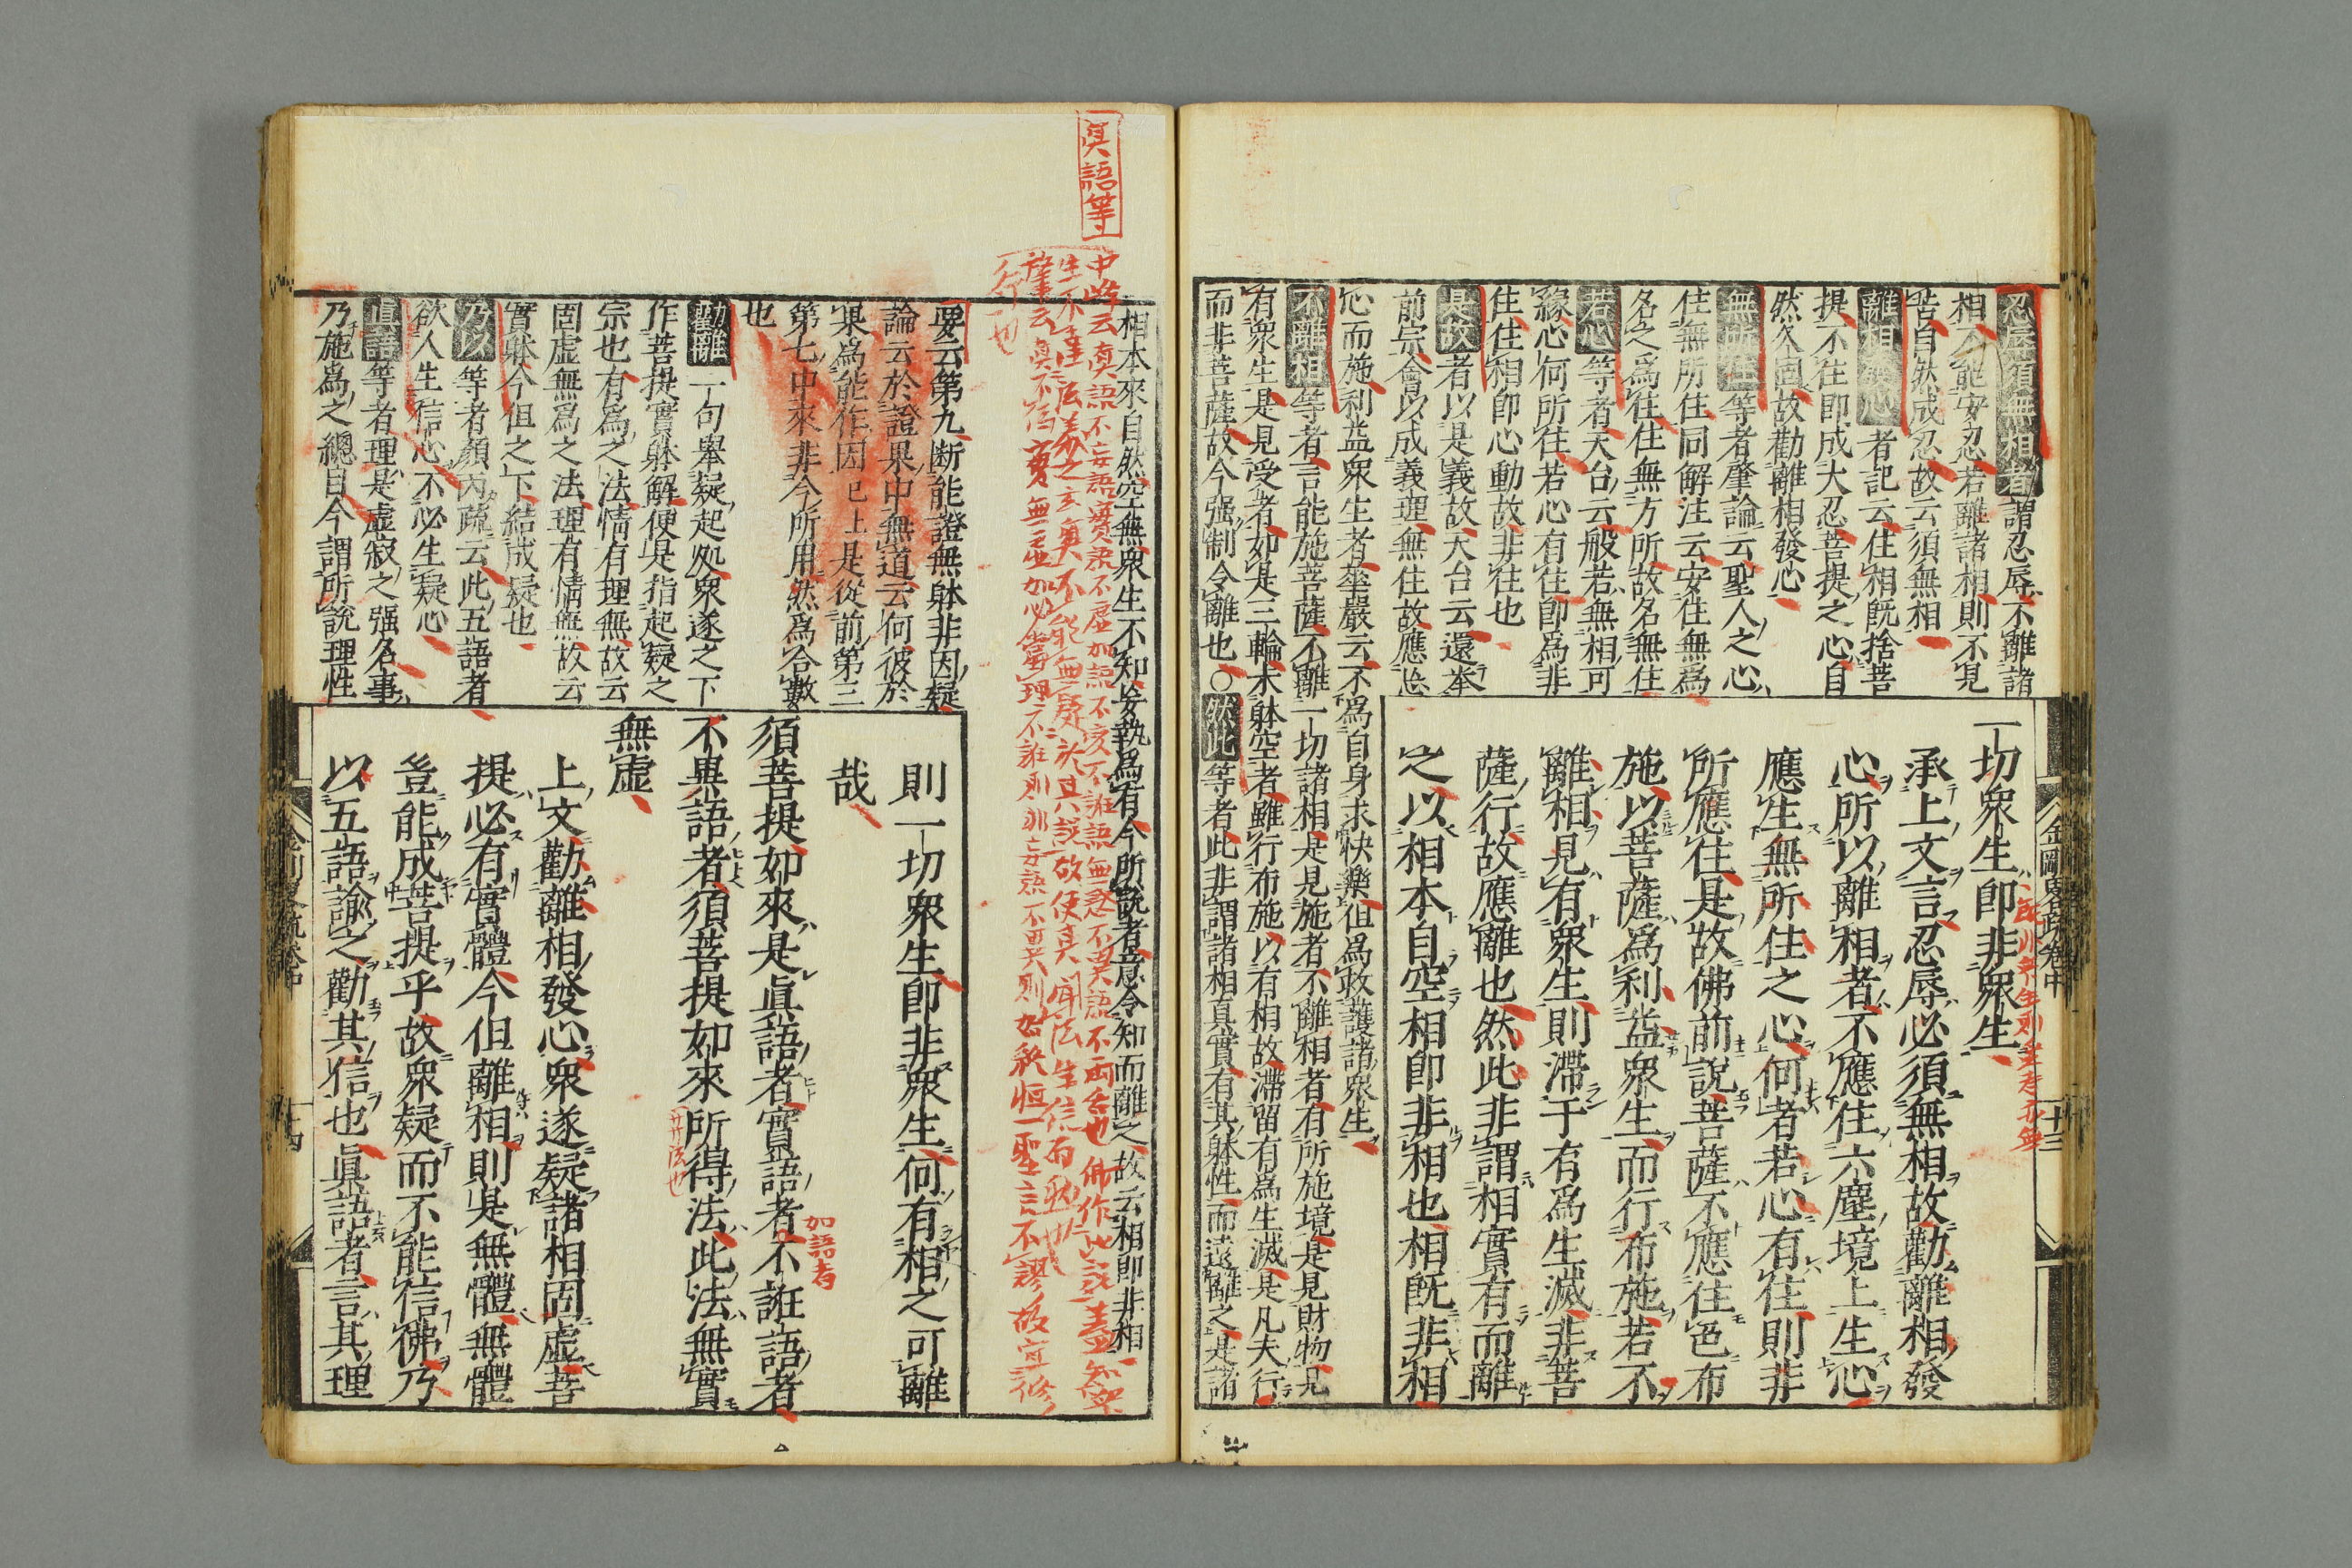 忍辱須無相者謂忍辱不離諸
相不能安忍若離諸相則不見
苦自然成忍故云須無相
離相發心者記云住相既捨菩
提不住即成大忍菩提之心自
然久固故勸離相發心
無所住等者肇論云聖人之心
住無所住同解注云安住無爲
名之爲住住無方所故名無住
若心等者天台云般若無相可
緣心何所住若心有住即爲非
住住相即心動故非住也
是故者以是義故天台云還举
前宗會以成義理無住故應
心而施利益衆生者華嚴云不爲自身求快樂但爲救護諸衆生
不離相等者言能施菩薩不離一切諸相是見施者不離相者有所施境是見財物見
有衆生是見受者如是三輪未躰空者雖行布施以有相故滯留有爲生滅是凡夫行
而非菩薩故今强制令離也〇然此等者此非謂諸相真實有其躰性而遠離之是諸
一切衆生即非衆生
承上文言忍辱必須無相故勸離相發
心所以離相者不應住六塵境上生心
應生無所住之心何者若心有住則非
所應住是故佛前說菩薩不應住色布
施以菩薩爲利益衆生而行布施若不
離相見有衆生則滯于有爲生滅非菩
薩行故應離也然此非謂相實有而離
之以相本自空相即非相也相既非相
金剛畧疏卷中
十三
真語等
相本來自然空無衆生不知妄執爲有今所說者意令知而離之故云相即非相
中峰云真語不妄語實語不虛如語不變不誑語無惑不異語不兩舌也佛作此說盖知衆
要云第九断能證無躰非因疑
論云於證果中無道云何彼於
果爲能作因已上是從前第三
第七中來非今所用然爲合數
也
勸離一句舉疑起処衆遂之下
作菩提實躰解便是指起疑之
宗也有爲之法情有理無故云
固虛無爲之法理有情無故云
實躰今但之下結成疑也
乃以等者顔丙疏云此五語者
欲人生信心不必生疑心
真語等者理是虛寂之强名事
乃施爲之總目今謂所說理性
則一切衆生即非衆生何有相之可離
哉
須菩提如來是真語者實語者不誑語者
如語者
不異語者須菩提如來所得法此法無實
無虛
上文勸離相發心衆遂疑諸相固虛菩
提必有實體今但離相則是無體無體
豈能成菩提乎故衆疑而不能信佛乃
以五語諭之勸其信也真語者言其理
十四